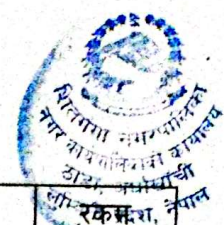 शितगंगा नगरपालिका
नगर कार्यपालिकाको कार्यालय
ठाडा, अर्घाखाँची
नेपाल
रकम